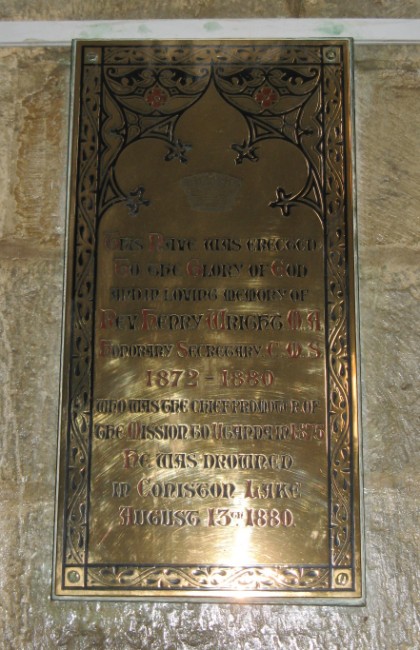 This Nave was erected
To the Glory of God
and in loving memory of
Rev. Henry Wright M.A.
Honorary Secretary C.M.S.
1872 - 1880
who was the chief promoter of
the Mission to Uganda in 1875
He was drowned
in Coniston Lake
August 13th 1880.